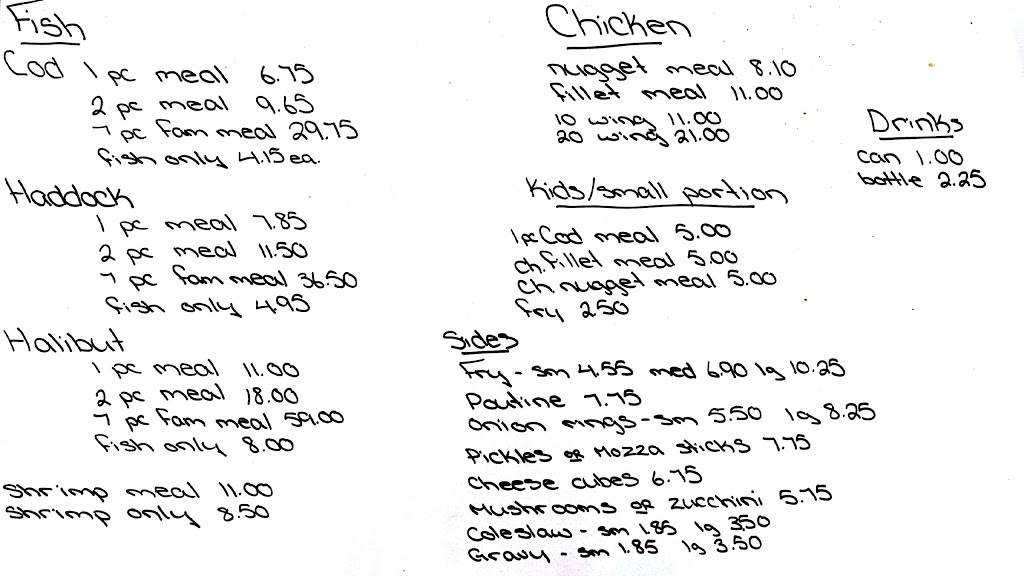 Fish
Cod 1 pc meal 6.75
2 pc meal 9.65
7 pc fam meal 29.75
fish only 4.15 ea.
Haddock
1 pc meal 7.85
2 pc meal 11.50
7 pc fam meal 36.50
fish only 4.95
Halibut
1 pc meal 11.00
2 pc meal 18.00
7 pc fam meal 59.00
fish only 8.00
Shrimp meal 11.00
Shrimp only 8.50
Chicken
nugget meal 8.10
fillet meal 11.00
10 wing 11.00
20 wing 21.00
Drinks
can 1.00
bottle 2.25
Kids/small portion
1 pc Cod meal 5.00
Ch. fillet meal 5.00
Ch nugget meal 5.00
fry 2.50
Sides
Fry - sm 4.55 med 6.90 lg 10.25
Poutine 7.75
Onion rings - sm 5.50 lg 8.25
Pickles or Mozza sticks 7.75
Cheese cubes 6.75
Mushrooms or Zucchini 5.75
Coleslaw - sm 1.85 lg 3.50
Gravy - sm 1.85 lg 3.50